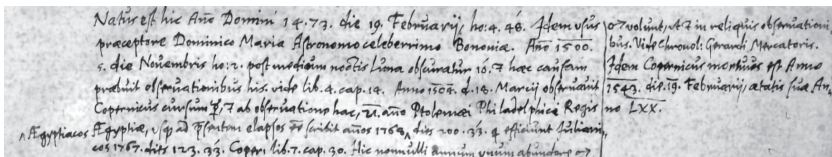 Natus est hic Año Domini 14.73. die 19. Februarij, ho: 4. 48. Idem usus
præceptore Dominico Maria Astronomo celeberrimo Bononiæ. Año 1500.
5. die Novembris ho: 2. post medium noctis Luna obscuratur 16.7 hæc causam
præbuit observationibus his. vide lib. 4. cap. 14. Anno 1504. d. 18. Martij observavit
Copernicus cursum ab observatione hac, año Ptolemæi Philadelphi Regis
^Ægyptiacos Ægyptiæ, usq ad elapsos scribit años 1768^ dies 200. 33. q efficiunt Juliani
cos 1767. dies 123. 33. Coper: lib. 7. cap. 30. Hic nonnulli annum unum abundare
volunt, et in reliquis observationi
bus. Vide Chronol: Gerardi Mercatoris.
Idem Copernicus mortuus est Anno
1543. die. 19. Februarij, ætatis suæ An
no LXX.